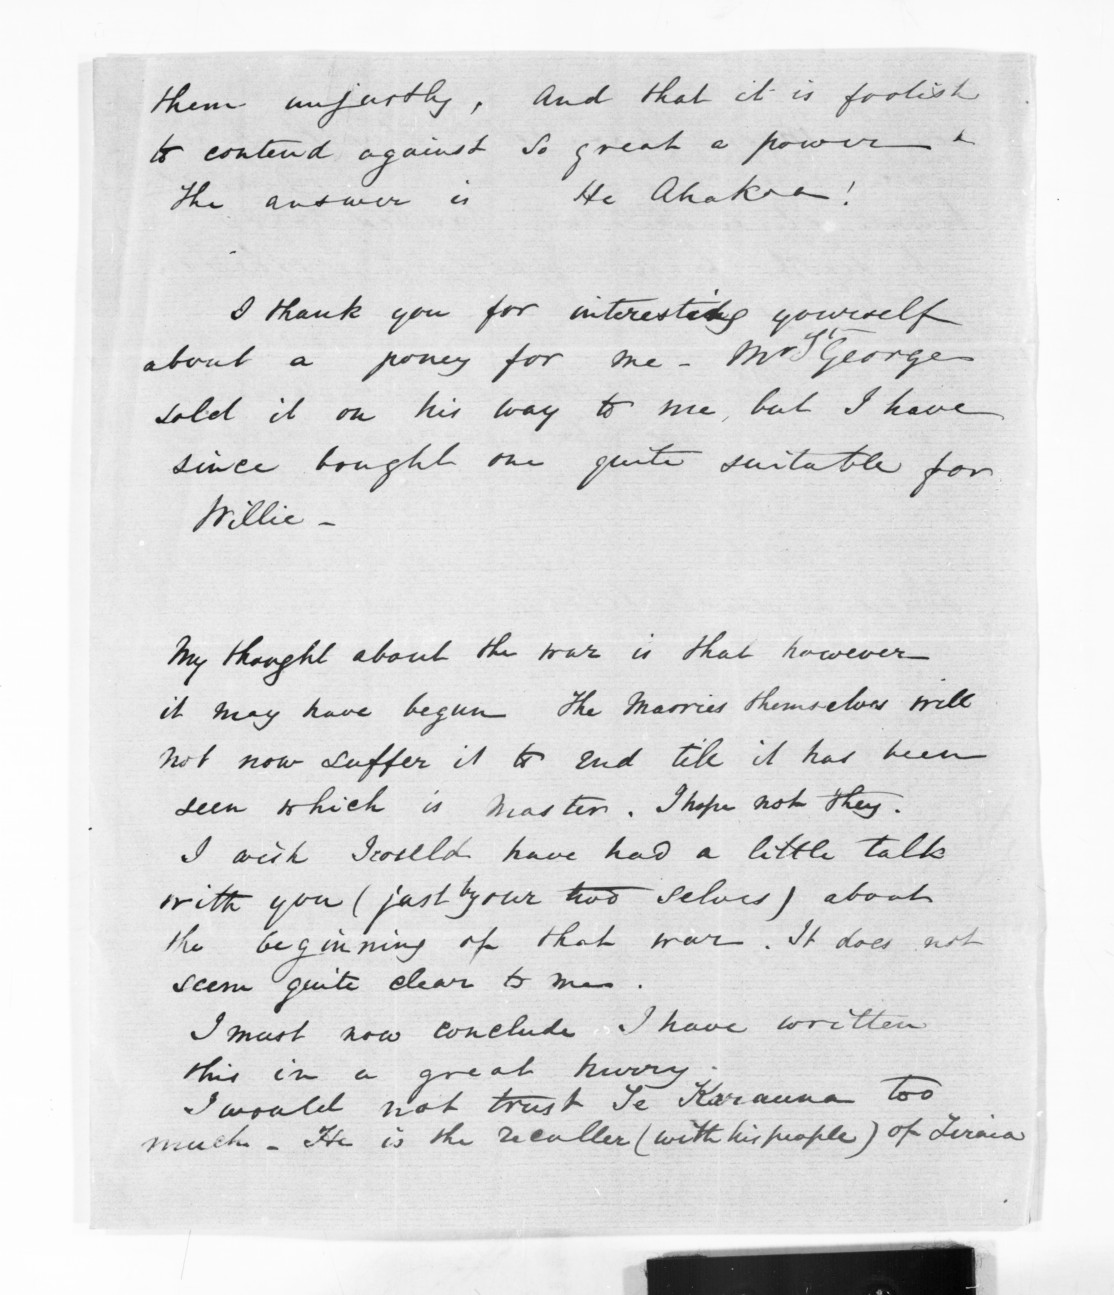 them unjustly, and that it is foolish
to contend against so great a power &
the answer is He Ahakoa!
I thank you for interesting yourself
about a poney for me - Mr St George
sold it on his way to me, but I have
since bought one quite suitable for
Willie -
My thought about the war is that however
it may have begun the Maories themselves will
not now suffer it to end till it has been
seen which is Master. I hope not they.
I wish I could have had a little talk
with you (just by our two selves) about
the beginning of that war. It does not
seem quite clear to me.
I must now conclude I have written
this in a great hurry.
I would not trust Te Karauna too
much - He is the recaller (with his people) of